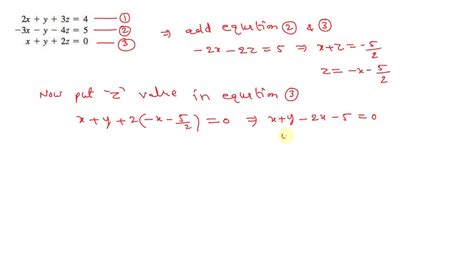 2x + y + 3z = 4 —— ①
−3x − y − 4z = 5 —— ②
x + y + 2z = 0 —— ③
⇒ add equation ② & ③
−2x − 2z = 5 ⇒ x + z = −5/2
z = −x − 5/2
Now put "z" value in equation ③
x + y + 2(−x − 5/2) = 0 ⇒ x + y − 2x − 5 = 0